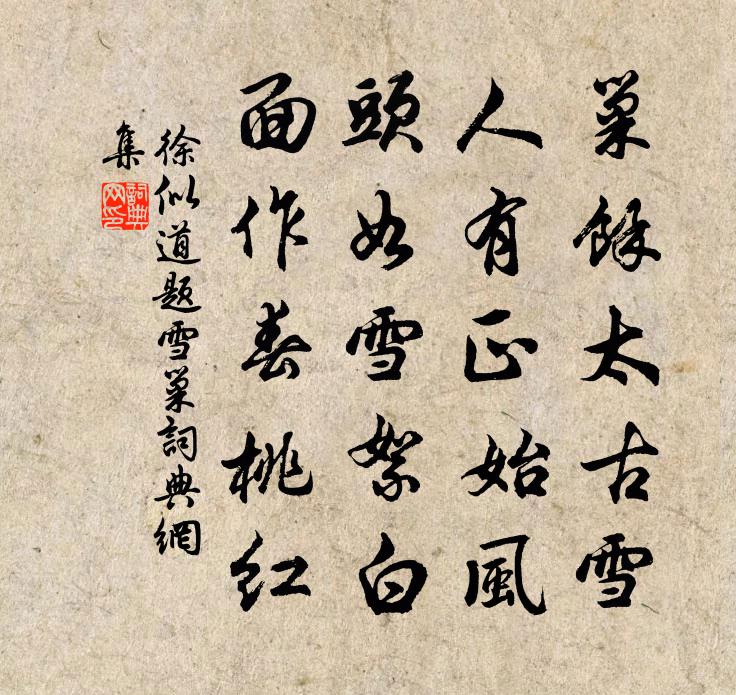 巢餘太古雪
人有正始風
頭如雪絮白
面作春桃紅
徐似道題雪巢詞典網
集
詞典網印